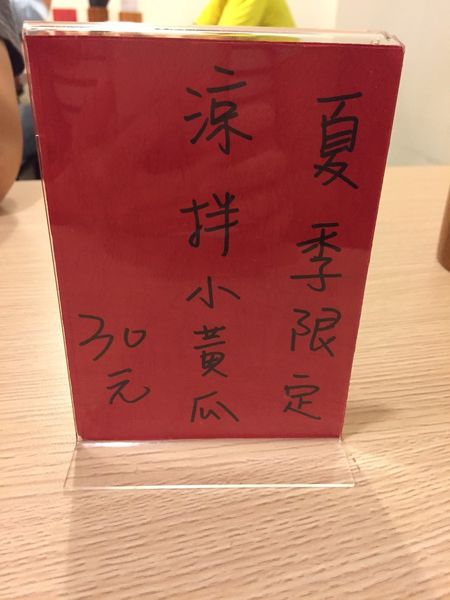 夏季限定
涼拌小黃瓜
30元